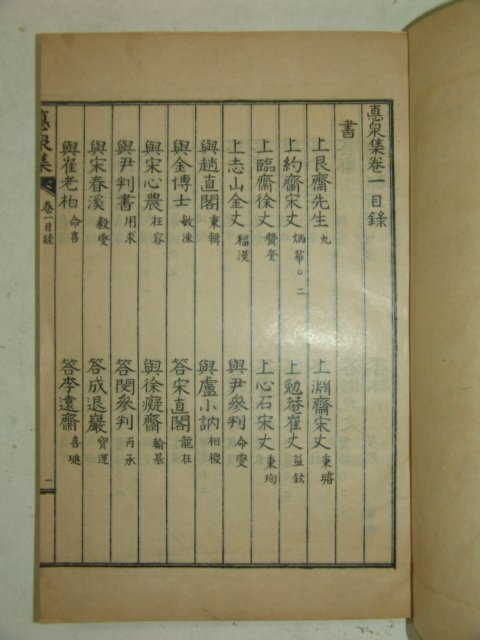 悳泉集卷一目錄
書
上艮齋先生 九
上淵齋宋丈 秉璿
上約齋宋丈 炳華○二
上勉菴崔丈 益鉉
上臨齋徐丈 贊奎
上心石宋丈 秉珣
上志山金丈 福漢
與尹參判 命燮
與趙直閣 秉輯
與盧小訥 相稷
與金博士 敏洙
答宋直閣 龍在
與宋心農 在容
與徐癡齋 翰基
與尹判書 用求
答閔參判 丙承
與宋春溪 毅燮
答成退巖 寶運
與崔老柏 命喜
答李遠齋 喜璡
悳泉集 卷一目錄 一